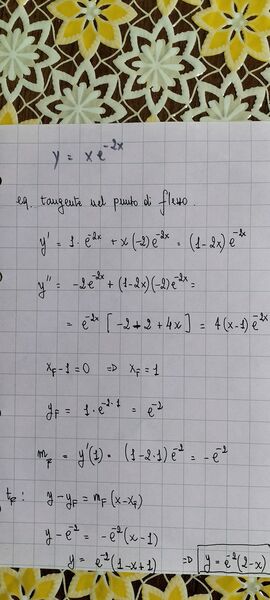 y = xe^{-2x}
eq. tangente nel punto di flesso.
y' = 1·e^{-2x} + x(-2)e^{-2x} = (1-2x)e^{-2x}
y'' = -2e^{-2x} + (1-2x)(-2)e^{-2x} =
= e^{-2x}[-2-2+4x] = 4(x-1)e^{-2x}
x_F-1=0 ⇒ x_F=1
y_F = 1·e^{-2·1} = e^{-2}
m_F = y'(1) = (1-2·1)e^{-2} = -e^{-2}
t_F: y-y_F = m_F(x-x_F)
y-e^{-2} = -e^{-2}(x-1)
y = e^{-2}(1-x+1) ⇒ y = e^{-2}(2-x)